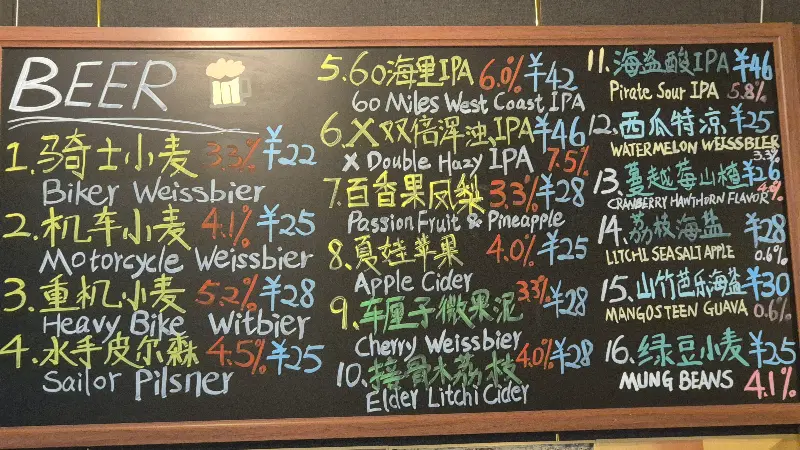 BEER
1.骑士小麦 3.3% ¥22
Biker Weissbier
2.机车小麦 4.1% ¥25
Motorcycle Weissbier
3.重机小麦 5.2% ¥28
Heavy Bike Witbier
4.水手皮尔森 4.5% ¥25
Sailor Pilsner
5.60海里IPA 6.0% ¥42
60 Miles West Coast IPA
6.X双倍浑浊IPA ¥46
X Double Hazy IPA 7.5%
7.百香果凤梨 3.3% ¥28
Passion Fruit & Pineapple
8.夏娃苹果 4.0% ¥25
Apple Cider
9.车厘子微果泥 3.3% ¥28
Cherry Weissbier
10.接骨木荔枝 4.0% ¥28
Elder Litchi Cider
11.海盗酸IPA ¥46
Pirate Sour IPA 5.8%
12.西瓜特凉 ¥25
WATERMELON WEISSBIER
3.3%
13.蔓越莓山楂 ¥26
CRANBERRY HAWTHORN FLAVOR
14.荔枝海盐 ¥28
LITCHI SEA SALT APPLE 0.6%
15.山竹芭乐海盐 ¥30
MANGOSTEEN GUAVA 0.6%
16.绿豆小麦 ¥25
MUNG BEANS 4.1%